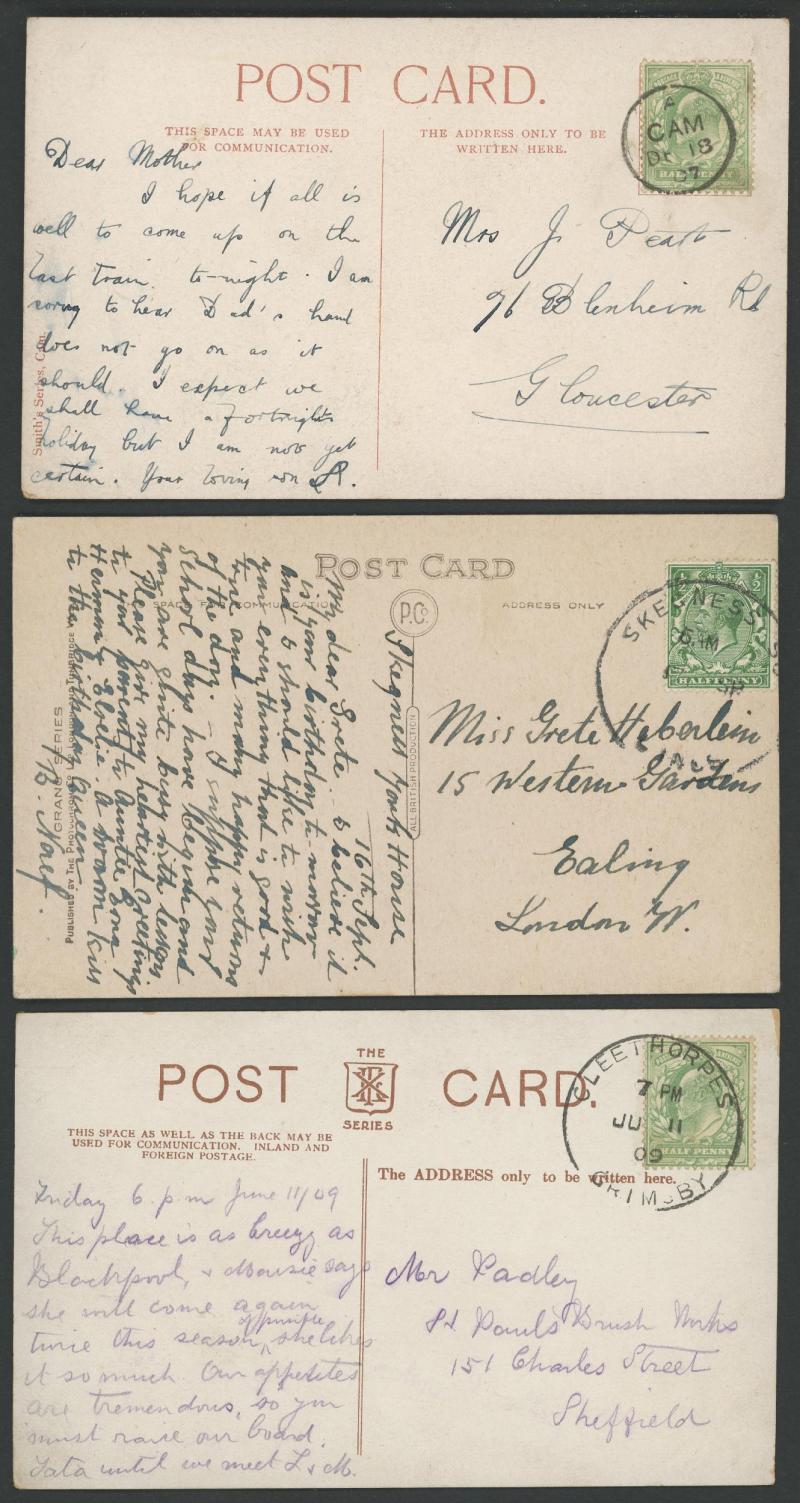 POST CARD.
THIS SPACE MAY BE USED
FOR COMMUNICATION.
THE ADDRESS ONLY TO BE
WRITTEN HERE.
A
CAM
DE 18
07
HALFPENNY
Dear Mother
I hope if all is
well to come up on the
last train to-night. I am
sorry to hear Dad's hand
does not go on as it
should. I expect we
shall have a fortnights
holiday but I am not yet
certain. Your loving son
Smith's Series, Cam.
Mrs J. Peart
76 Blenheim Rd
Gloucester
POST CARD
SPACE FOR COMMUNICATION
ADDRESS ONLY
P.Co.
ALL BRITISH PRODUCTION
GRANO SERIES
PUBLISHED BY THE TUNBRIDGE
SKEGNESS
HALFPENNY
Skegness York House
16th Sept.
My dear Grete - I believe it
is your birthday to-morrow
and I should like to wish
you everything that is good &
true and many happy returns
of the day. - I suppose your
School days have begun and
you are quite busy with lessons
Please give my heartiest greetings
to your parents to Auntie
Herman & A warm kiss
to the birthday Queen
Miss Grete Heberlein
15 Western Gardens
Ealing
London W.
POST CARD.
THE
SERIES
THIS SPACE AS WELL AS THE BACK MAY BE
USED FOR COMMUNICATION. INLAND AND
FOREIGN POSTAGE.
The ADDRESS only to be written here.
CLEETHORPES
7 PM
JU 11
09
GRIMSBY
HALF PENNY
Friday 6 p.m June 11/09
This place is as breezy as
Blackpool, & Mousie says
she will come again
twice this season, if possible, she likes
it so much. Our appetites
are tremendous, so you
must raise our board.
Tata until we meet L & M.
Mr Padley
St. Paul's Brush Works
151 Charles Street
Sheffield